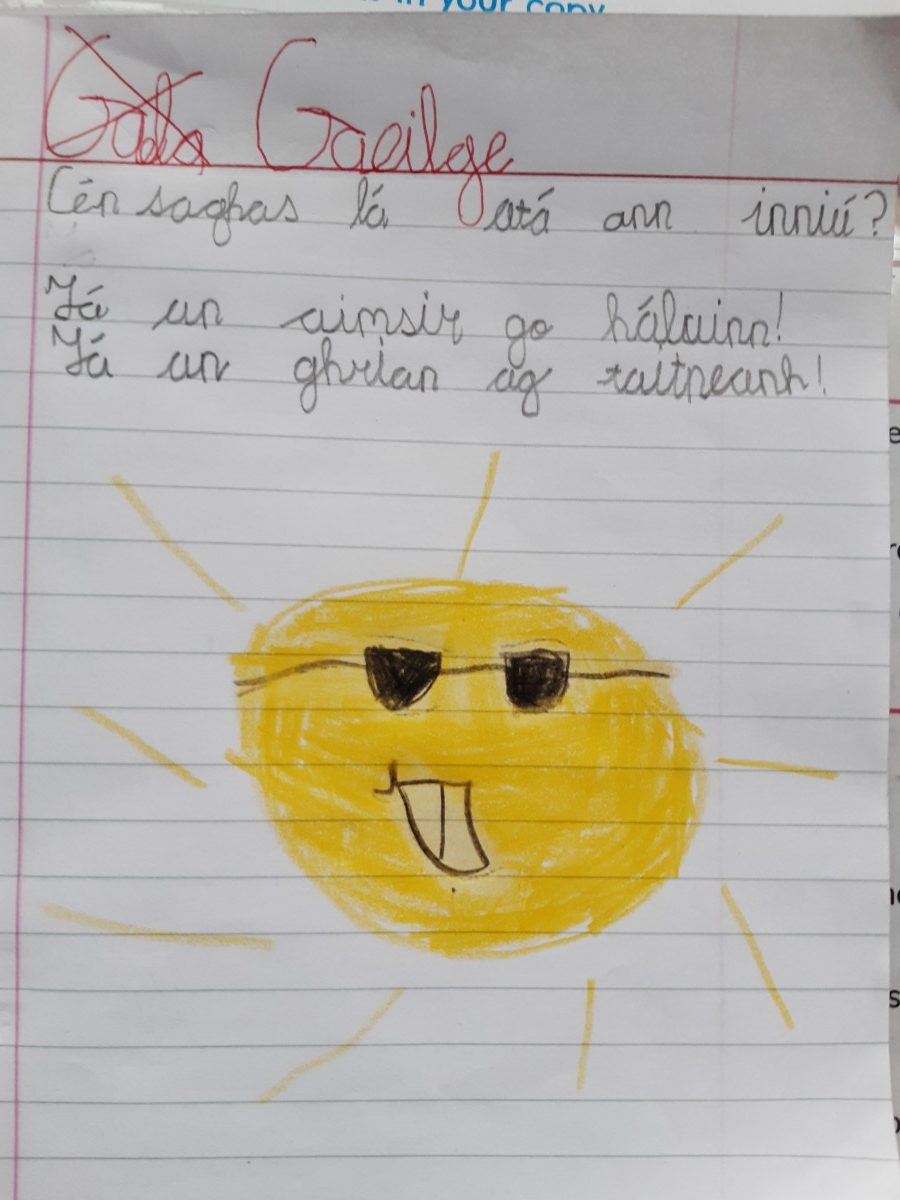 in your copy
Gaeilge
Cén saghas lá atá ann inniú?
Tá an aimsir go hálainn!
Tá an ghrian ag taitneanh!